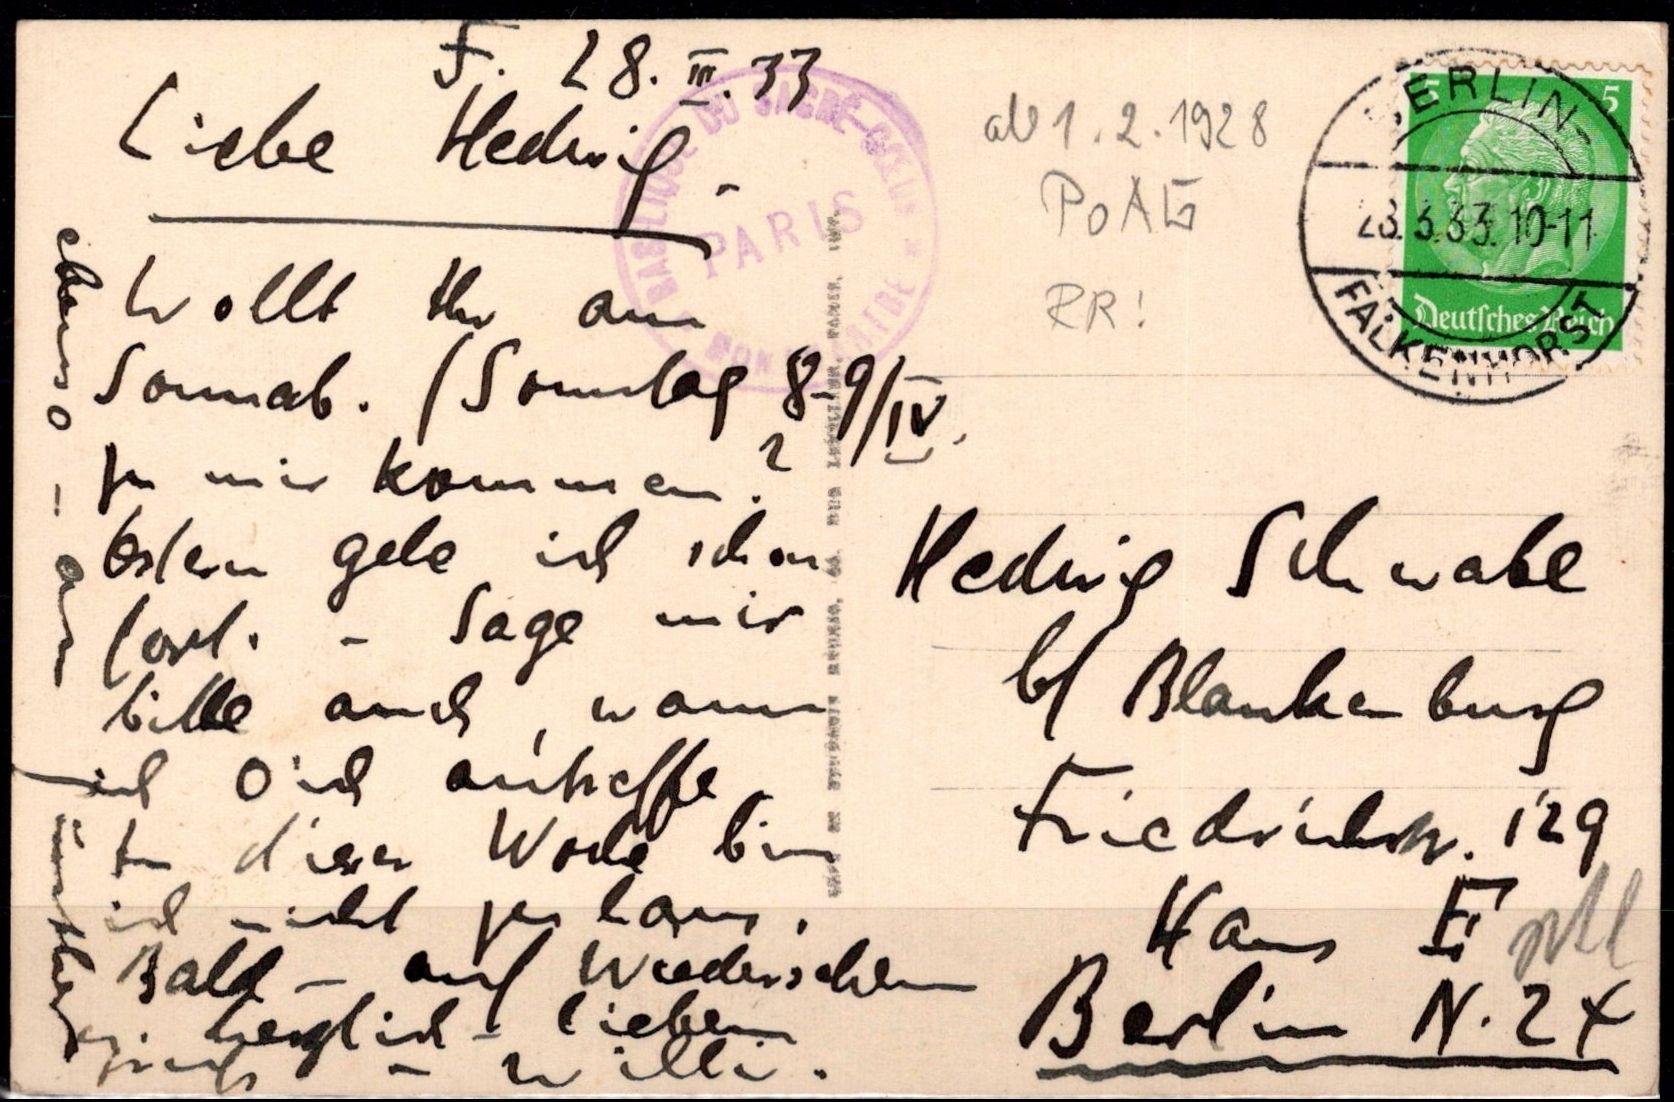 F. 28. III. 33
Liebe Hedwig -
Wollt Ihr am
Sonnab. / Sonntag 8-9/IV.
zu mir kommen?
Ostern gehe ich schon
fort. - Sage mir
bitte auch, wann
ich Dich antreffe.
In dieser Woche bin
ich nicht zu haus.
Bald - auf Wiedersehen
herzlich - lieben
- Willi.
ebenso - an
BASILIQUE DU SACRÉ-CŒUR * MONTMARTRE
PARIS
ab 1.2.1928
PoAG
RR!
BERLIN-
28.3.33.10-11
FALKENHORST
5 5
Deutsches Reich
Hedwig Schwabe
b/ Blankenburg
Friedrichstr. 129
Haus E
Berlin N. 24